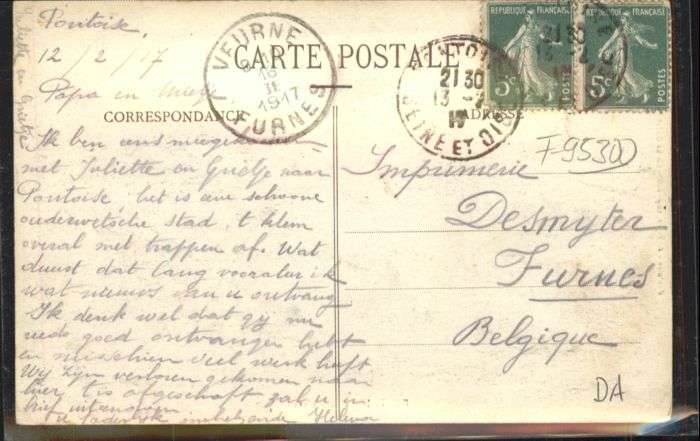 Pontoise,
12/2/17
Papa en
Ik ben eens meegekomen
met Juliette en Grietje naar
Pontoise, het is een schoone
ouderwetsche stad, 't klem
overal met trappen af. Wat
duurt dat lang vooraleer ik
wat nieuws van u ontvang
Ik denk wel dat gij nu
reeds goed ontvangen hebt
en misschien veel werk heeft
Wij zijn verloren gekomen naar
hier, 't is afgeschaft zal u in
brief uitleggen
Helena
Juliette en Grietje
CARTE POSTALE
CORRESPONDANCE
ADRESSE
VEURNE
16
II
1917
FURNES
PONTOISE
21 30
13 -2
17
SEINE ET OISE
REPUBLIQUE FRANÇAISE
5c
POSTES
REPUBLIQUE FRANÇAISE
5c
POSTES
21 30
F-95300
Imprimerie
Desmyter
Furnes
Belgique
DA